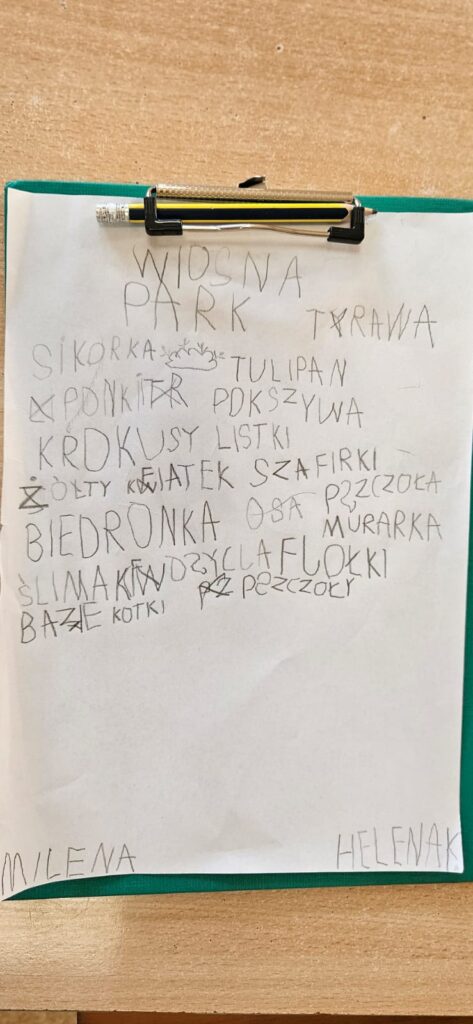 WIOSNA
PARK TRAWA
SIKORKA TULIPAN
PONKI POKSZYWA
KROKUSY LISTKI
ŻÓŁTY KWIATEK SZAFIRKI
BIEDRONKA OSA PĘZCZOŁA
MURARKA
ŚLIMAK FIOŁKI
BAZIE KOTKI PEZCZOŁY
MILENA HELENAK